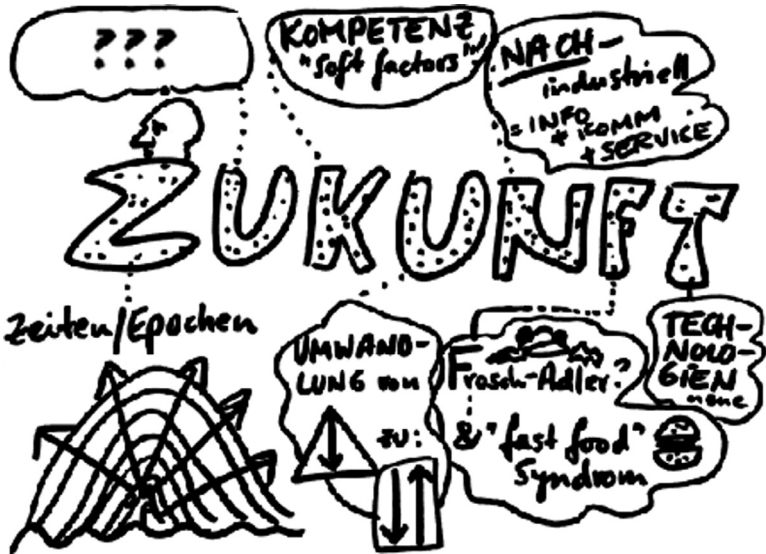 ???
KOMPETENZ
"soft factors"
NACH-
industriell
= INFO
+ KOMM
+ SERVICE
ZUKUNFT
Zeiten/Epochen
UMWAND-
LUNG von
zu:
Frosch-Adler?
& "fast food"
Syndrom
TECH-
NOLO-
GIEN
neue